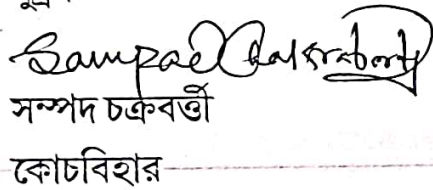 Sampad Chakraborty
সম্পদ চক্রবর্ত্তী
কোচবিহার